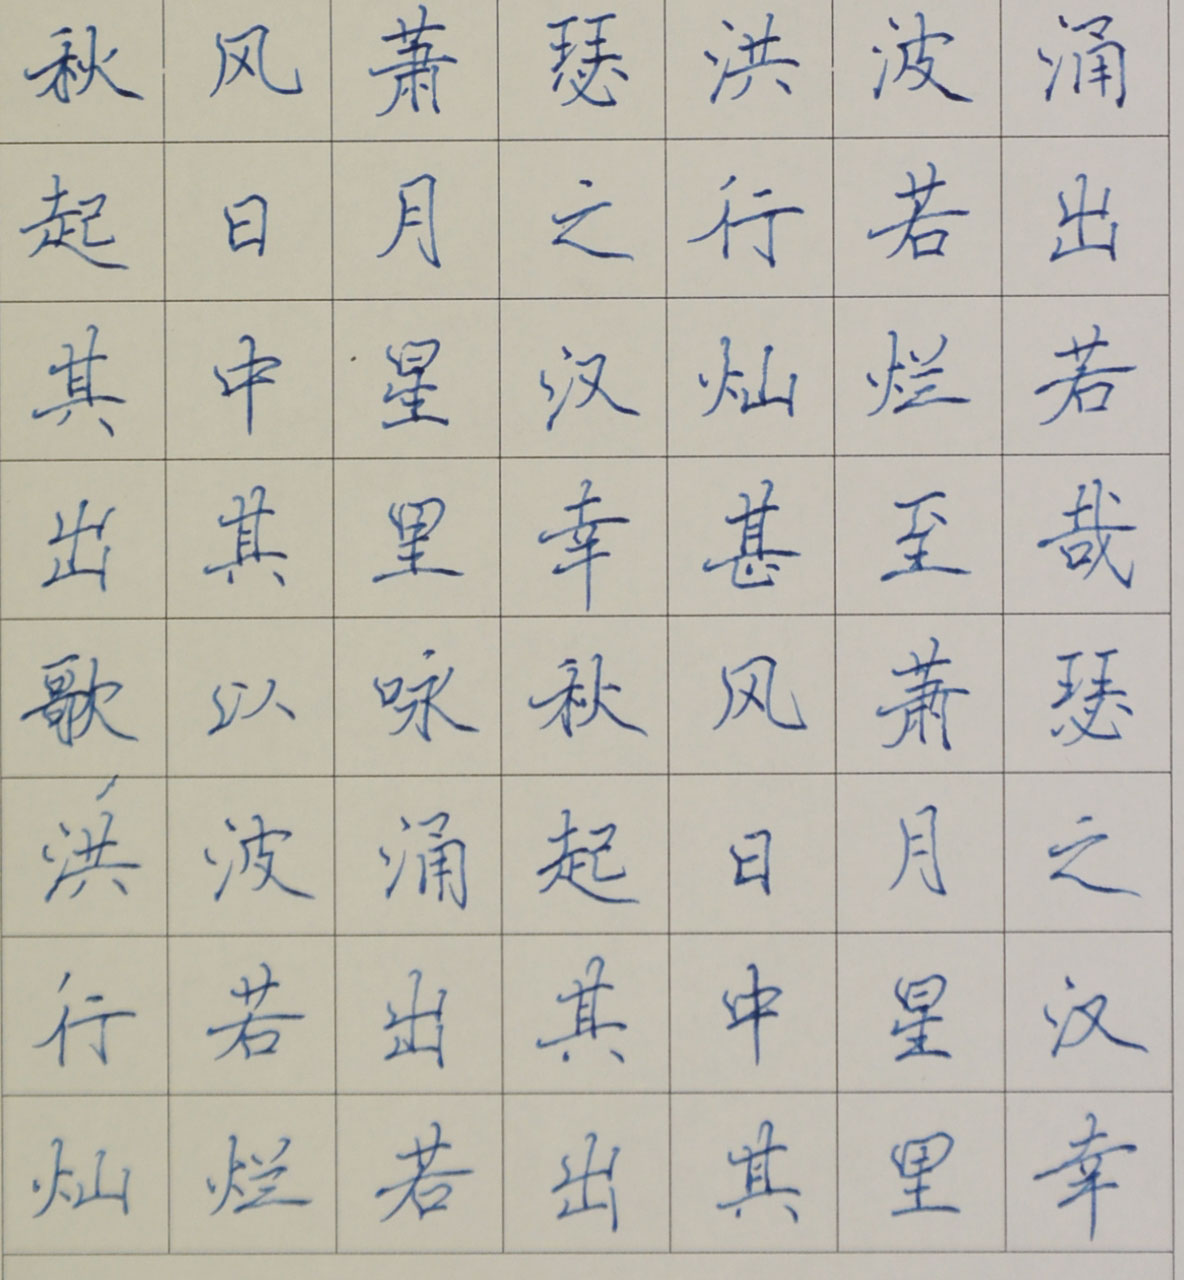 秋风萧瑟洪波涌
起日月之行若出
其中星汉灿烂若
出其里幸甚至哉
歌以咏秋风萧瑟
洪波涌起日月之
行若出其中星汉
灿烂若出其里幸